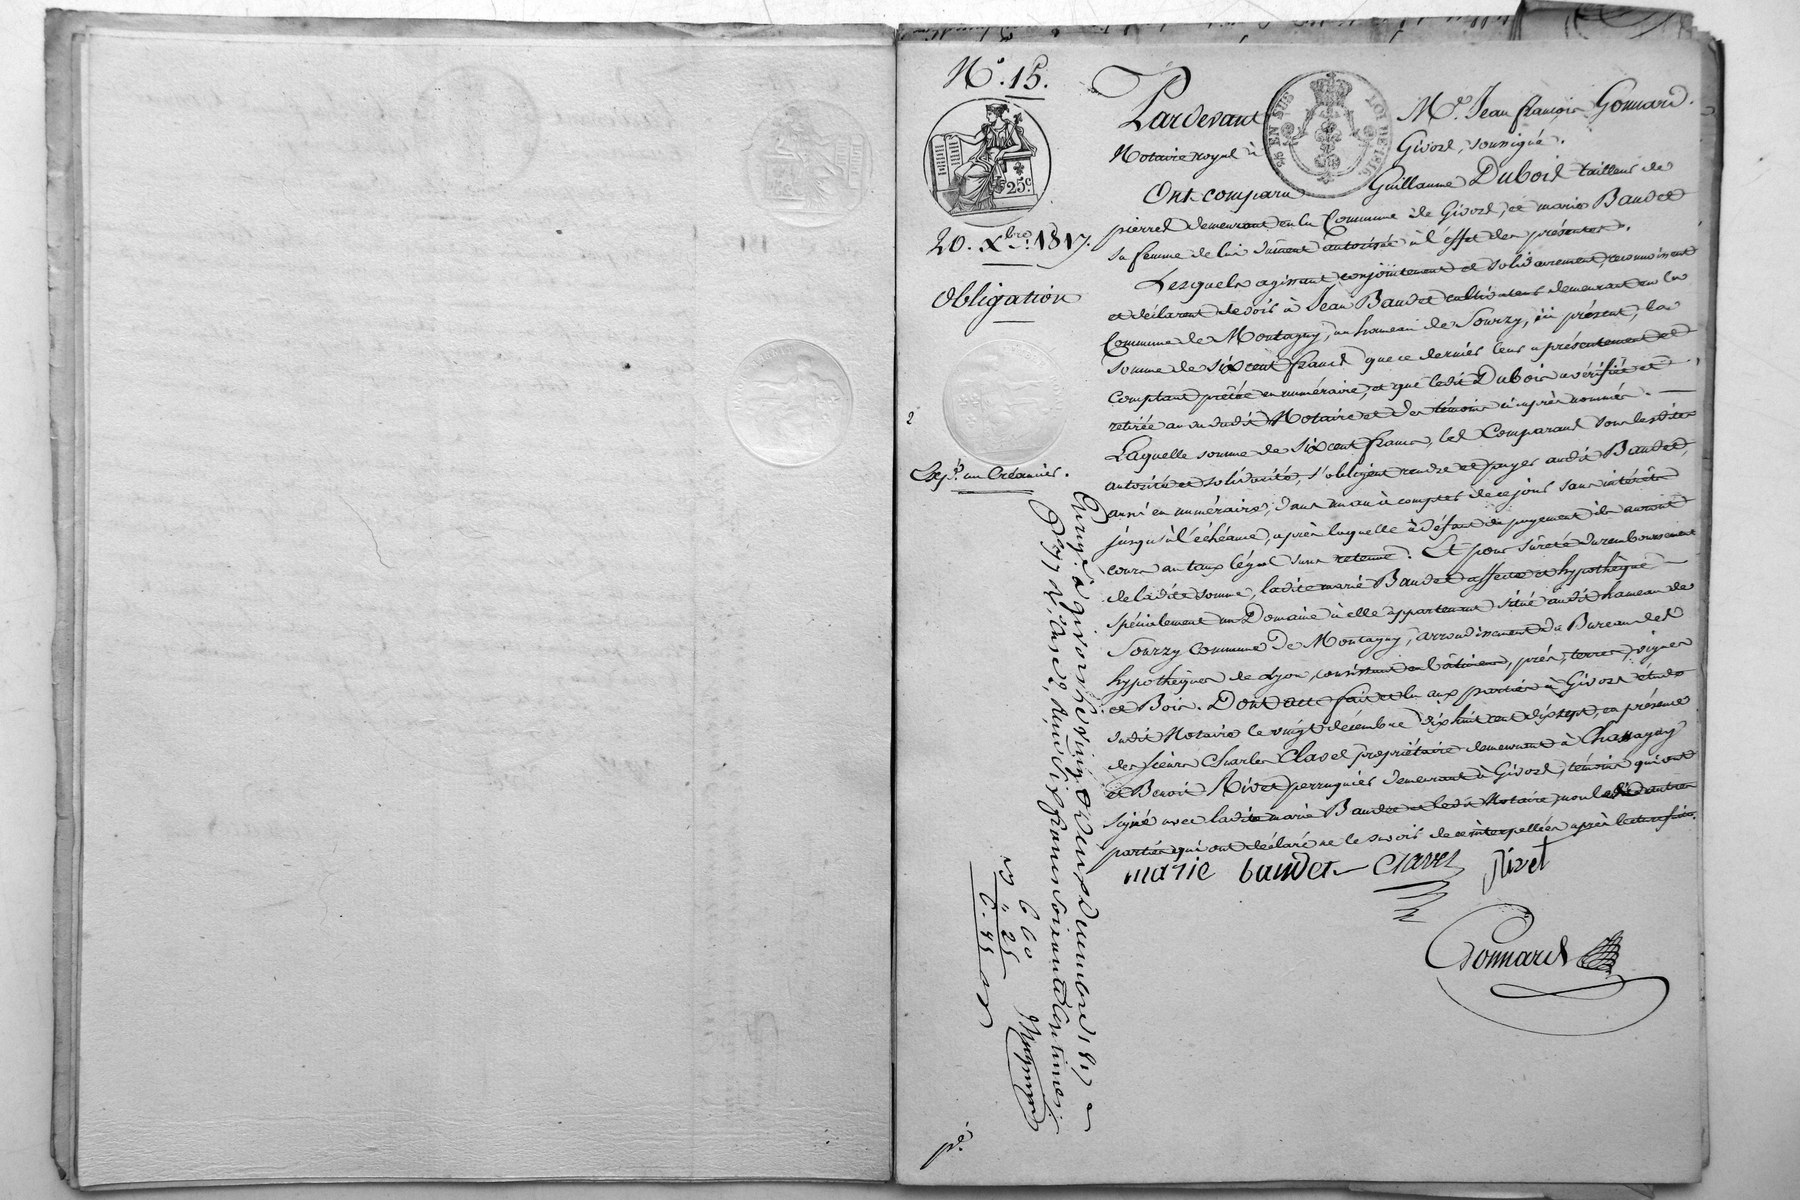 N.° 15.
25c
20. Xbre. 1817.
Obligation
Expé. au Créancier.
EN SUS
LOI DE 1816
Pardevant Me. Jean françois Gonnard.
Notaire royal à Givord, soussigné.
Ont comparu Guillaume Dubois tailleur de
pierres demeurant en la Commune de Givord, et marie Baudet
sa femme de lui dument autorisée à l'effet des présentes.
Lesquels agissant conjointement et solidairement, reconnoissent
et déclarent devoir à Jean Baudet cultivateur demeurant en la
Commune de Montagny, au hameau de Sourzy, ici présent, la
somme de six cent francs que ce dernier leur a présentement et
comptant prêtée en numéraire, et que ledit Dubois a vérifiée et
retirée au vu dudit Notaire et des témoins ci après nommés.
Laquelle somme de six cent francs, les Comparans sous lesdites
autorité et solidarité, s'obligent rendre et payer audit Baudet,
aussi en numéraire, dans un an à compter de ce jour sans intérêts
jusqu'à l'échéance, après laquelle à défaut de payement ils auront
cours au taux légal sans retenue. Et pour sûreté du remboursement
de ladite somme, ladite marie Baudet affecte et hypothèque
spécialement un Domaine à elle appartenant situé audit hameau de
Sourzy Commune de Montagny, arrondissement du Bureau des
hypothèques de Lyon, consistant en bâtimens, prés, terres, vignes
et Bois. Dont acte fait et lu aux parties à Givord étude
dudit Notaire le vingt décembre dix huit cent dix sept, en présence
des sieurs Charles Clavel propriétaire demeurant à Chassagny
et Benoit Rivet perruquier demeurant à Givord, témoins qui ont
signé avec ladite marie Baudet et ledit Notaire, non lesdites autres
parties qui ont déclaré ne le savoir de ce interpellées après lecture faite.
marie baudet Clavel Rivet
Gonnard
Enregé. à givors le vingt deux decembre 1817
six francs soixante centimes
6 60
6.